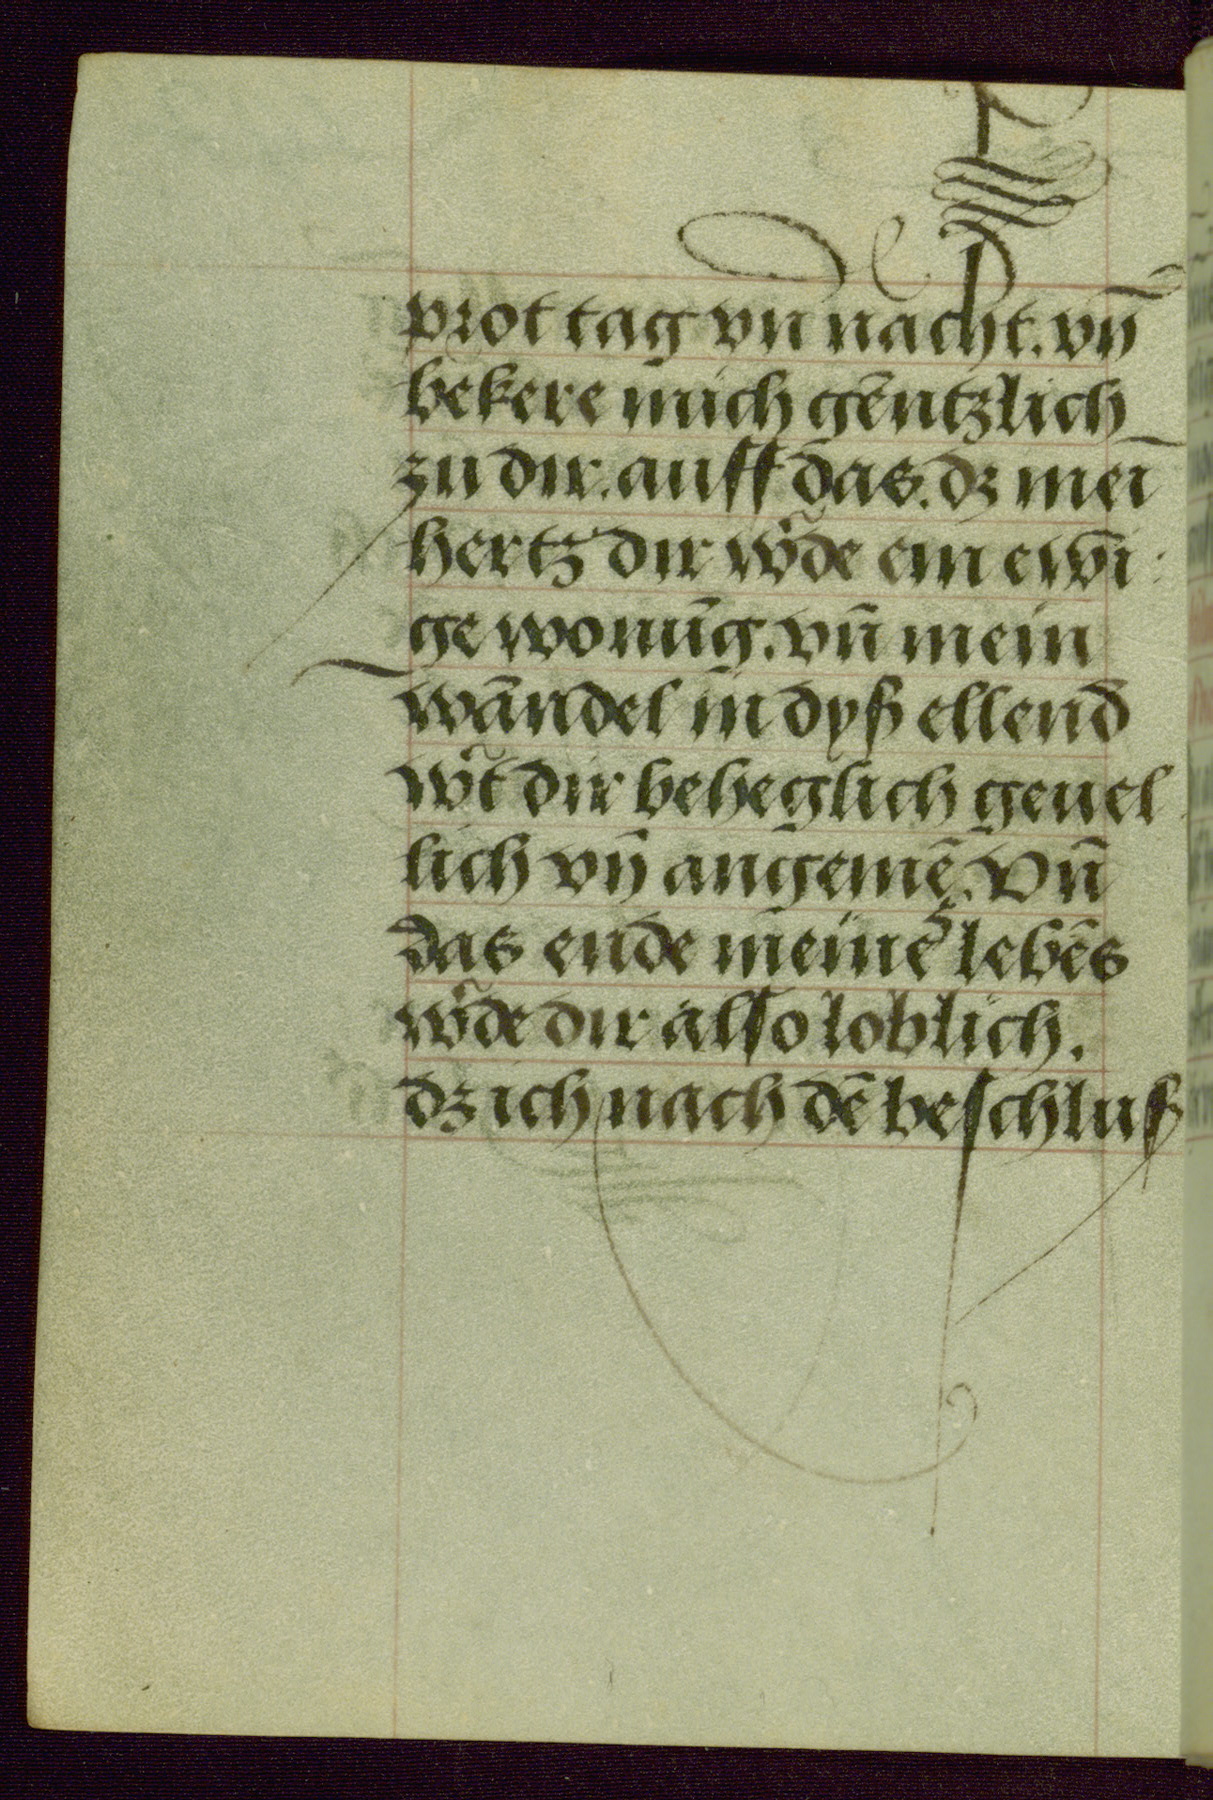 prot tag vn nacht. vn̄
bekere mich gēntzlich
zu dir. auff das. dz mei̅
hertz dir w̃de ein ewi
ge wonūg. vn̄ mein
wandel in dyß ellend
w̃t dir beheglich geuel
lich vn̄ angemē. Vn̄
das ende meine᷒ lebēs
w̃de dir also loblich.
dz ich nach dē beschluß